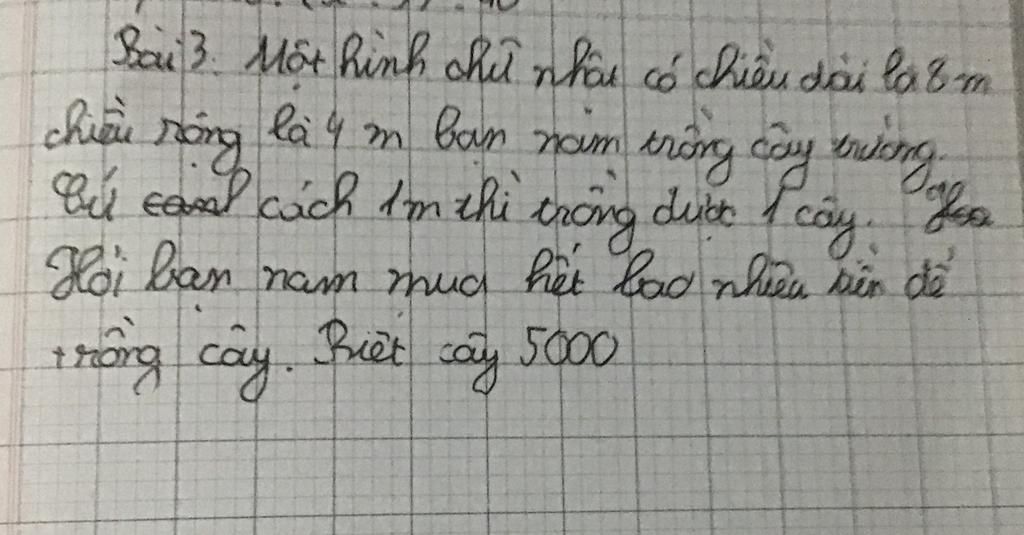 Bài 3. Một hình chữ nhật có chiều dài là 8 m
chiều rộng là 4 m bạn nam trồng cây trường.
Cứ cách 1m thì trồng được 1 cây.
Hỏi bạn nam mua hết bao nhiêu tiền để
trồng cây. Biết cây 5000